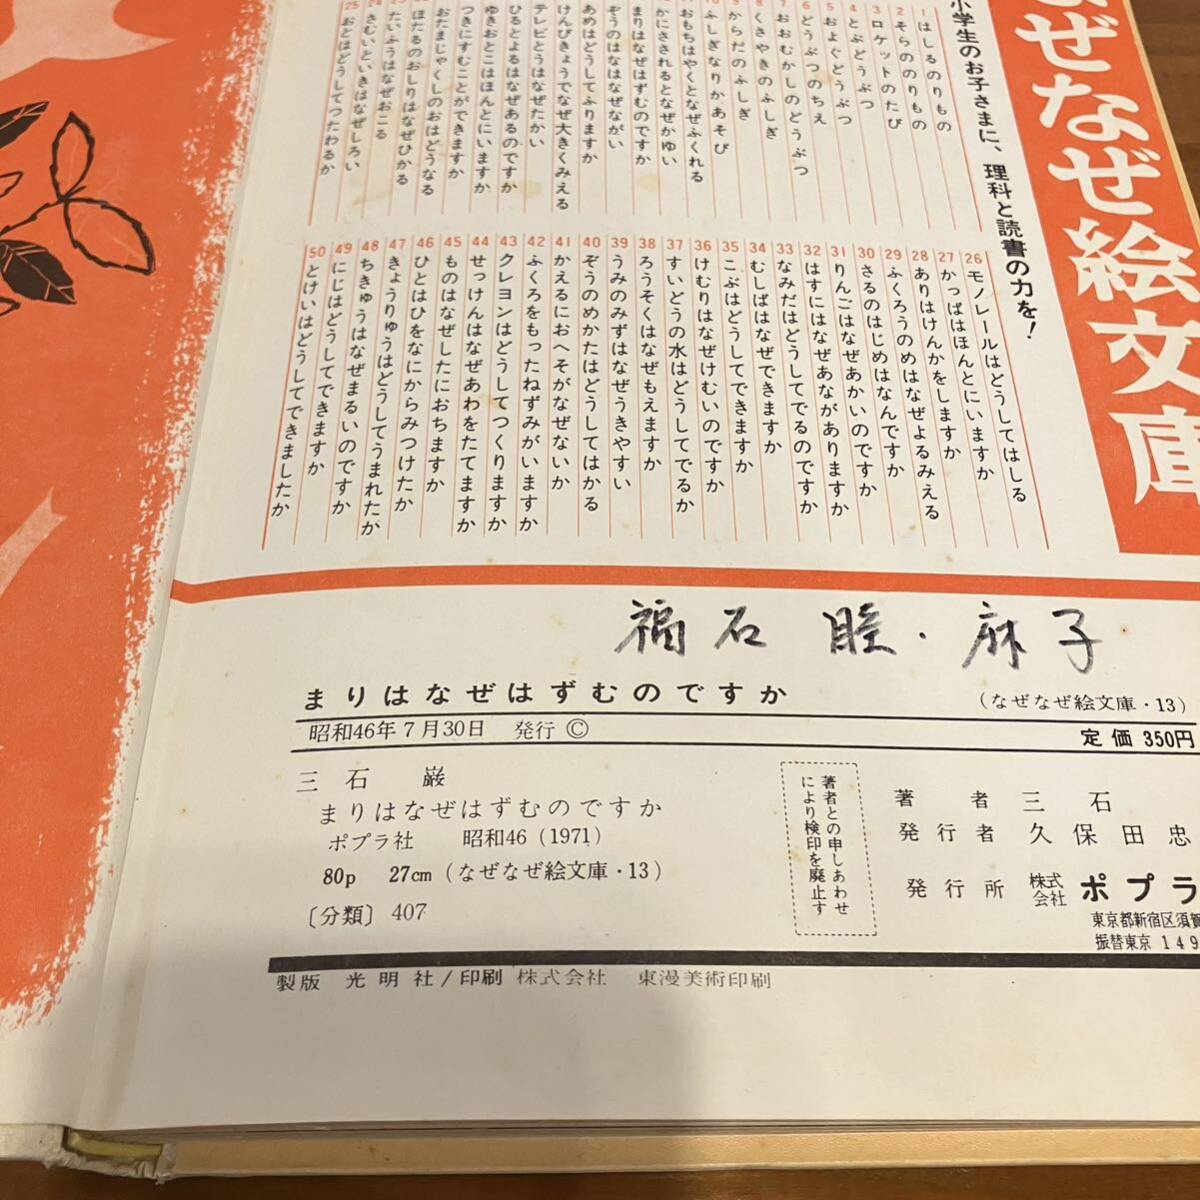 なぜなぜ絵文庫
小学生のお子さまに、理科と読書の力を！
1 はしるのりもの
2 そらののりもの
3 ロケットのたび
4 とぶどうぶつ
5 およぐどうぶつ
6 どうぶつのちえ
7 おおむかしのどうぶつ
8 くさやきのふしぎ
9 からだのふしぎ
10 ふしぎなりかあそび
おもちはやくとなぜふくれる
かにさされるとなぜかゆい
まりはなぜはずむのですか
ぞうのはなはなぜながい
あめはどうしてふりますか
けんびきょうでなぜ大きくみえる
テレビとうはなぜたかい
ひるとよるはなぜあるのですか
ゆきおとこはほんとにいますか
つきにすむことができますか
おたまじゃくしのおはどうなる
ほたるのおしりはなぜひかる
たいふうはなぜおこる
24 さむいといきはなぜしろい
25 おとはどうしてつたわるか
26 モノレールはどうしてはしる
27 かっぱはほんとにいますか
28 ありはけんかをしますか
29 ふくろうのめはなぜよるみえる
30 さるのはじめはなんですか
31 りんごはなぜあかいのですか
32 はすにはなぜあながありますか
33 なみだはどうしてでるのですか
34 むしばはなぜできますか
35 こぶはどうしてできますか
36 けむりはなぜけむいのですか
37 すいどうの水はどうしてでるか
38 ろうそくはなぜもえますか
39 うみのみずはなぜうきやすい
40 ぞうのめかたはどうしてはかる
41 かえるにおへそがなぜないか
42 ふくろをもったねずみがいますか
43 クレヨンはどうしてつくりますか
44 せっけんはなぜあわをたてますか
45 ものはなぜしたにおちますか
46 ひとはひをなにからみつけたか
47 きょうりゅうはどうしてうまれたか
48 ちきゅうはなぜまるいのですか
49 にじはどうしてできますか
50 とけいはどうしてできましたか
福石 睦・麻子
まりはなぜはずむのですか
（なぜなぜ絵文庫・13）
昭和46年7月30日 発行 ©
定価 350円
三石 巌
まりはなぜはずむのですか
ポプラ社 昭和46（1971）
80p 27cm（なぜなぜ絵文庫・13）
〔分類〕407
著者との申しあわせ
により検印を廃止す
著者 三石
発行者 久保田忠
発行所 株式会社 ポプラ
東京都新宿区須賀
振替東京 149
製版 光明社/印刷 株式会社 東漫美術印刷